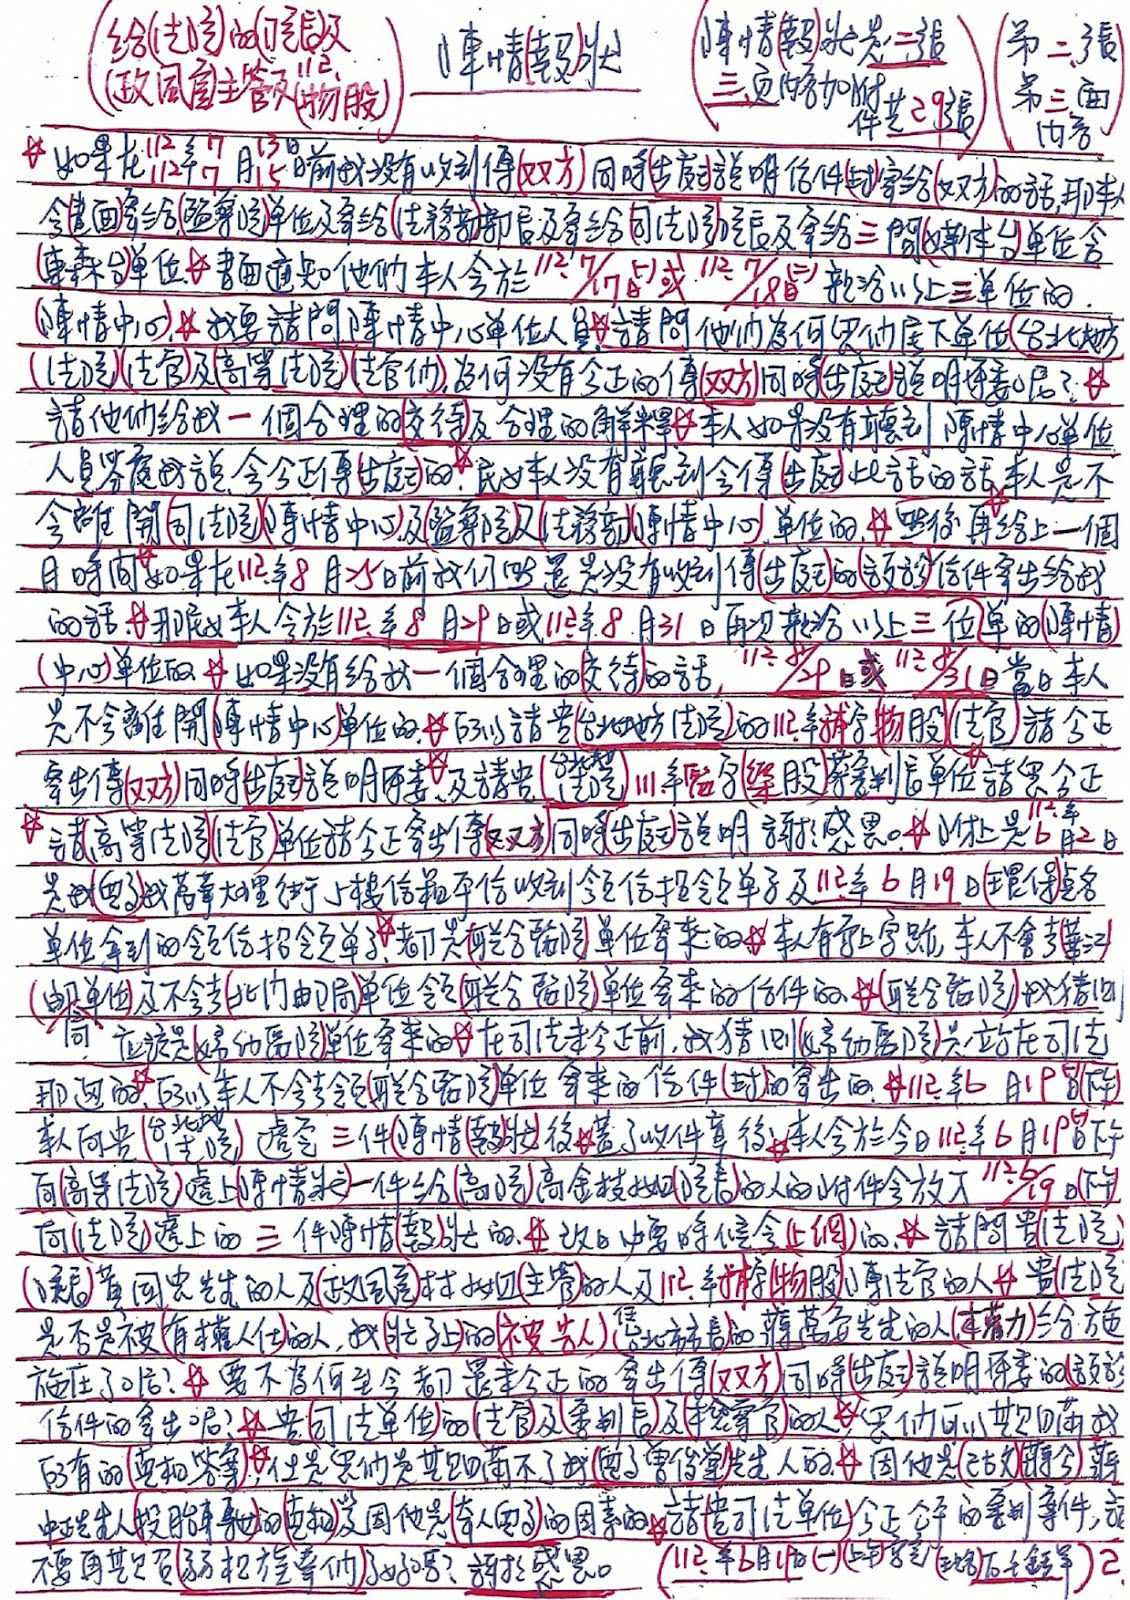 (給(法院)的(院長)及
(政風室)主管及112.(物股)
陳情(報)狀
(陳情(報)狀是二張
三頁內容加附
件共29張)
(第二張
第三面
內容)
☆如果在112年7月13日 112年7月15日前我沒有收到傳(双方)同時(出庭)說明信件(封)寄給(双方)的話,那本人
會(書面)寄給(監察院)單位及寄給(法務部)部長及寄給(司法院)院長及寄給三間(媒体台)單位含
(東森台)單位☆書面通知他們本人會於112.7/17日(一)或112.7/18日(二)親洽以上三單位的.
(陳情中心).☆我要請問(陳情中心)單位人員☆請問他們為何貴他們底下單位(台北地方
(法院)(法官)及(高等法院)(法官)們.為何沒有公正的傳(双方)同時(出庭)說明原委呢?☆
請他們給我一個合理的(交待)及合理的解釋☆本人如果沒有聽到陳情中心單位
人員答應我說,會公正傳(出庭)的☆民女本人沒有聽到會傳(出庭)此話的話☆本人是不
會離開(司法院)(陳情中心)及(監察院)及(法務部)(陳情中心)單位的.☆然後再給上一個
月時間☆如果在112.年8月25日前我们然還是沒有收到傳(出庭)的(該封)信件寄出給我
的話.☆那民女本人會於112.年8月29日或112.年8月31日再次親洽以上三位單的(陳情)
(中心)單位的.☆如果沒有給我一個合理的(交待)的話,112.8/29日或112.8/31日當日本人
是不會離開(陳情中心)單位的.☆所以請貴(台北地方法院)的112.年補字(物股)(法官)請公正
寄出傳(双方)同時(出庭)說明原委☆及請貴(台北地方法院)111年監字(股)審判長單位☆請公正
☆請(高等法院)(法官)單位請公正寄出傳(双方)同時(出庭)說明謝謝感恩。☆附上是112.年6月2日
是我(兒子)我萬華大理街上樓信箱平信收到領信招領單子及112.年6月19日(環保)
單位拿到的領信招領單子☆都是(聯合醫院)單位寄來的☆本人有寫上字跡,本人不會去(華江)
(郵局單位)及不會去(北门邮局)單位領(聯合醫院)單位寄來的信件的.☆(聯合醫院)我猜測
應該是(婦幼醫院)單位寄來的☆在司法未公正前.我猜測(婦幼醫院)是站在司法
那邊的☆所以本人不會去領(聯合醫院)單位寄來的信件(封)的寄出的.☆112.年6月19日(下午)
本人向貴(台北地方法院)遞完三件(陳情(報)狀)後☆蓋了收件章後☆本人會於今日112.年6月19日下午
向(高等法院)遞上(陳情狀)一件給(高院)高金枝女士(院長)的人的附件會放入112.6/19日(下午)
向(法院)遞上的三件陳情(報)狀的☆改日必要時信會(上網)的.☆請問貴(法院)
(院長)黃國忠先生的人及(政風室)林女士(主管)的人及112.年補字(物股)陳法官的人☆貴(法院)
是否是被(有權人仕)的人,我(狀子上)的(被告人)台北市長的蔣萬安先生的人(本權力)給施
施压了呢?☆要不為何至今都還未公正的寄出傳(双方)同時(出庭)說明原委的(該封)
信件的寄出呢?☆貴(司法單位)的(法官)及(審判長)及(檢察官)的人☆您們可以欺瞞我
所有的(真相答案)☆但是您們是欺瞞不了我(兒子)曾俊堂先生人的☆因他是(已故)(蔣公)蔣
中正先生人(投胎轉世)的(真相)及因他是(本人兒子)的因素的☆請貴司法單位公正公平的審判案件,請
不要再欺負(弱权族羣们)了好嗎?謝謝感恩。
(112.年6月19日(一)(上午)寫完
2